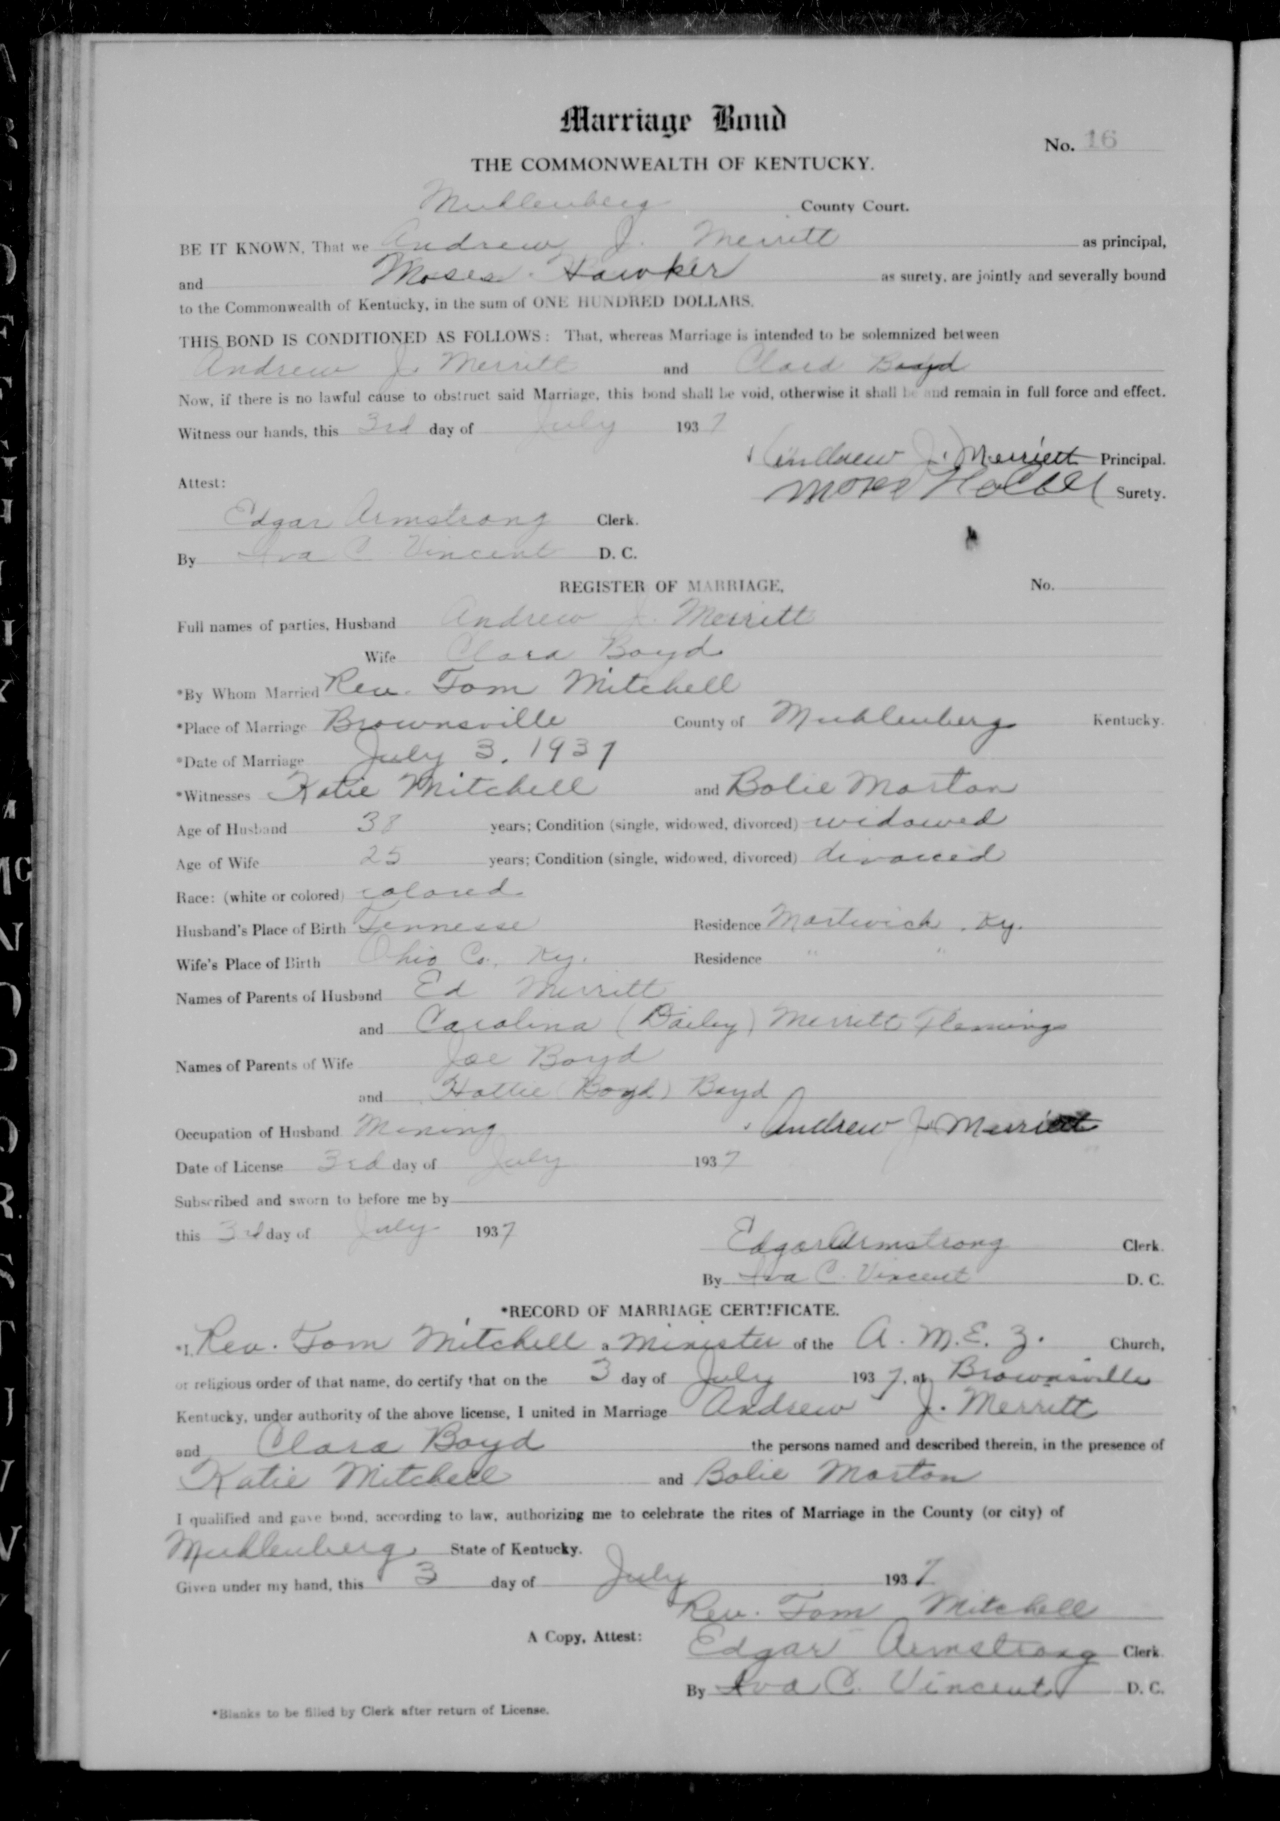 Marriage Bond
No. 16
THE COMMONWEALTH OF KENTUCKY.
Muhlenberg County Court.
BE IT KNOWN, That we Andrew J. Merritt as principal,
and Moses Hawker as surety, are jointly and severally bound
to the Commonwealth of Kentucky, in the sum of ONE HUNDRED DOLLARS.
THIS BOND IS CONDITIONED AS FOLLOWS: That, whereas Marriage is intended to be solemnized between
Andrew J. Merritt and Clara Boyd
Now, if there is no lawful cause to obstruct said Marriage, this bond shall be void, otherwise it shall be and remain in full force and effect.
Witness our hands, this 3rd day of July 1937
Andrew J. Merriett Principal.
Attest:
Surety.
Edgar Armstrong Clerk.
By Iva C. Vincent D. C.
REGISTER OF MARRIAGE, No.
Full names of parties, Husband Andrew J. Merritt
Wife Clara Boyd
*By Whom Married Rev. Tom Mitchell
*Place of Marriage Brownsville County of Muhlenberg Kentucky.
*Date of Marriage July 3, 1937
*Witnesses Katie Mitchell and Bolie Morton
Age of Husband 38 years; Condition (single, widowed, divorced) widowed
Age of Wife 25 years; Condition (single, widowed, divorced) divorced
Race: (white or colored) colored
Husband's Place of Birth Tennesse Residence Martwick, Ky.
Wife's Place of Birth Ohio Co., Ky. Residence " "
Names of Parents of Husband Ed Merritt
and Carolina (Dailey) Merritt Flemings
Names of Parents of Wife Joe Boyd
and Hattie (Boyd) Boyd
Occupation of Husband Mining Andrew J. Merriett
Date of License 3rd day of July 1937
Subscribed and sworn to before me by
this 3rd day of July 1937
Edgar Armstrong Clerk.
By Iva C. Vincent D. C.
*RECORD OF MARRIAGE CERTIFICATE.
*I, Rev. Tom Mitchell a Minister of the A. M. E. Z. Church,
or religious order of that name, do certify that on the 3 day of July 1937, at Brownsville
Kentucky, under authority of the above license, I united in Marriage Andrew J. Merritt
and Clara Boyd the persons named and described therein, in the presence of
Katie Mitchell and Bolie Morton
I qualified and gave bond, according to law, authorizing me to celebrate the rites of Marriage in the County (or city) of
Muhlenberg State of Kentucky.
Given under my hand, this 3 day of July 1937
Rev. Tom Mitchell
A Copy, Attest: Edgar Armstrong Clerk
By Iva C. Vincent D. C.
*Blanks to be filled by Clerk after return of License.